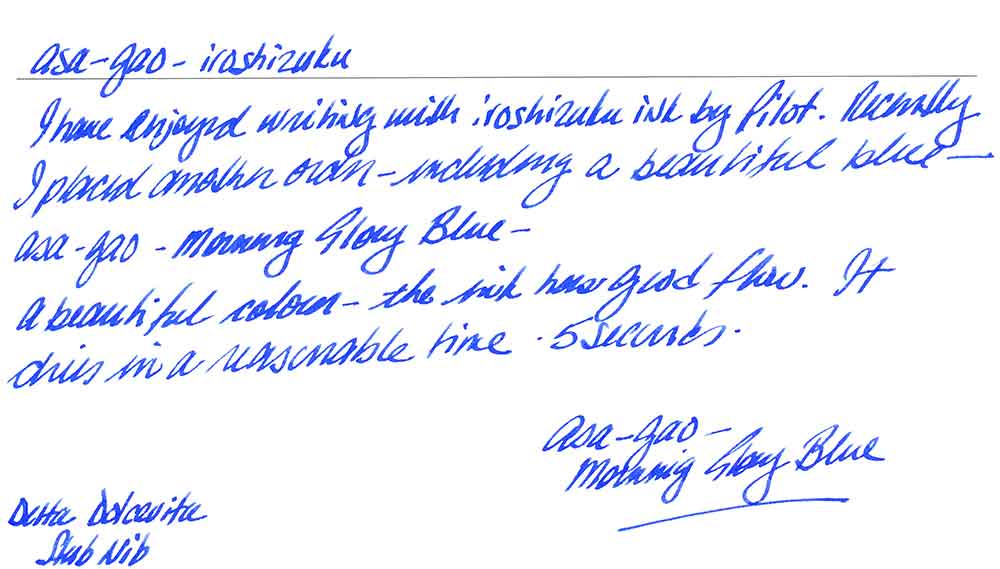 asa-gao - iroshizuku
I have enjoyed writing with iroshizuku ink by Pilot. Recently
I placed another order - including a beautiful blue -
asa-gao - Morning Glory Blue -
a beautiful colour - the ink has good flow. It
dries in a reasonable time . 5 seconds.
asa-gao -
Morning Glory Blue
Delta Dolcevita
Stub Nib